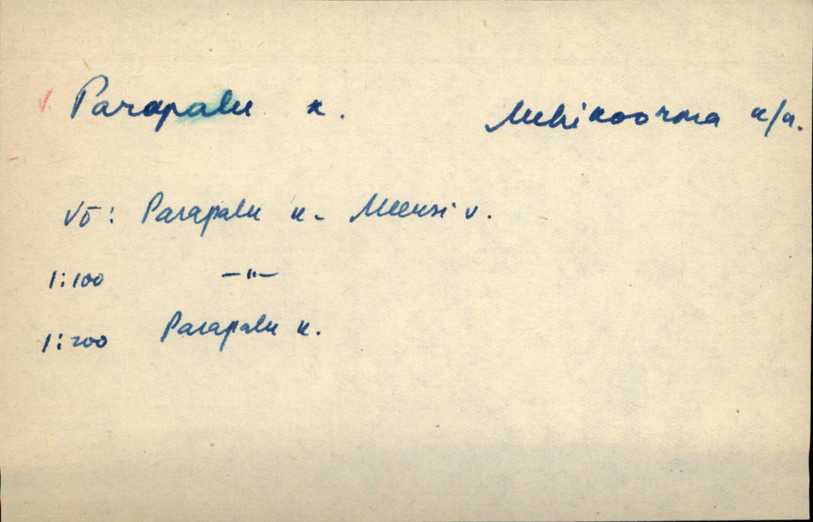 Parapalu k. Mehikoorma k/n.
Võ: Parapalu k. Meeksi v.
1:100 -"-
1:200 Parapalu k.